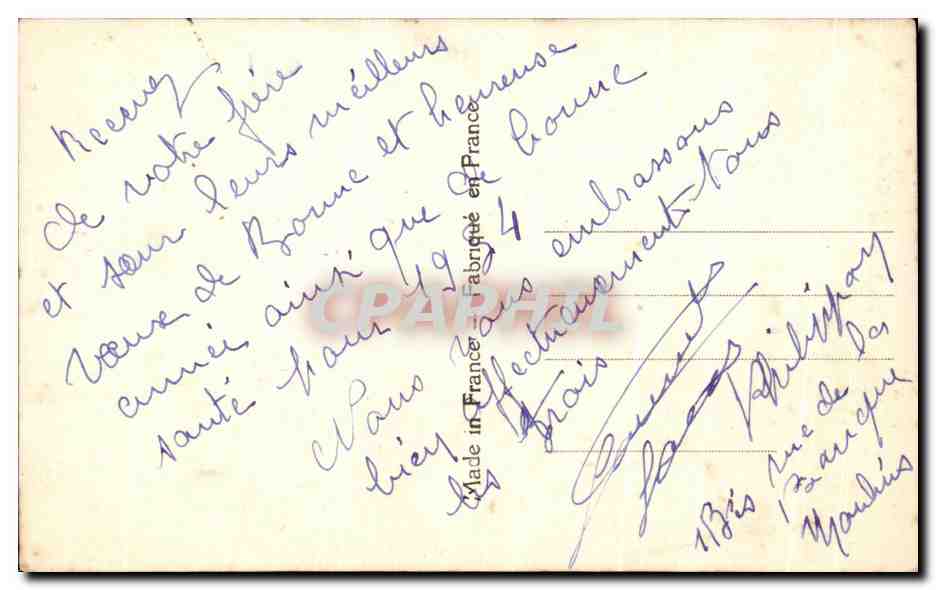 Recevez
de votre frère
et sœur leurs meilleurs
vœux de Bonne et heureuse
année ainsi que de bonne
santé pour 1954
Nous vous embrassons
bien affectueusement tous
les trois
Philippon
1 Bis rue de la
Banque
Moulins
Made in France - Fabriqué en France
CPAPHIL